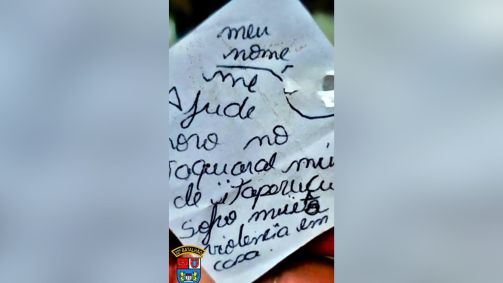 meu
nome
me
Ajude
moro no
taquaral mu
de itaperuçu
sofro muita
violencia em
casa.